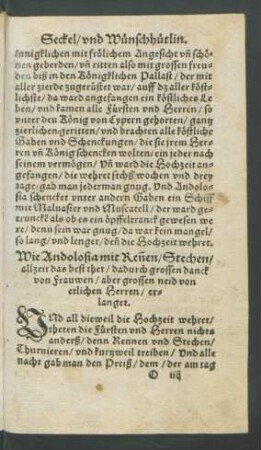 Seckel/ vnd Wünschhütlin.
ennigklichen mit frölichem Angesicht vñ schö-
nen geberden/ vñ ritten also mit grossen freu-
den biß in den Königklichen Pallast/ der mit
aller zierde zugerüstet war/ auff dz aller köst-
lichste/ da ward angefangen ein köstliches Le
ben/ vnd kamen alle Fürsten vnd Herren/ so
vnter den König von Cypern gehorten/ gang
zierlichen geritten/ vnd brachten alle köstliche
Gaben vnd Schenckungen/ die sie jrem Her-
ren vñ König schencken wolten/ ein jeder nach
seinem vermögen/ Vñ ward die Hochzeit an-
gefangen/ die wehret sechß wochen vnd drey
tage/ gab man jederman gnug. Vnd Andolo-
sia schencket vnter andern Gaben ein Schiff
mit Maluasier vnd Muscatell/ der ward ge-
truncke als ob es ein öpffeltranck gewesen we
re/ denn sein war gnug/ da war kein mangel/
so lang/ vnd lenger/ deñ die Hochzeit wehret.
Wie Andolosia mit Reñen/ Stechen/
allzeit das best thet/ dadurch grossen danck
von Frauwen/ aber grossen neid von
etlichen Herren/ er-
langet.
VNd all dieweil die Hochzeit wehret/
theten die Fürsten vnd Herren nichts
anderß/ denn Rennen vnd Stechen/
Thurnieren/ vnd kurzweil treiben/ Vnd alle
nacht gab man den Preiß/ dem/ der am tag
O iiij